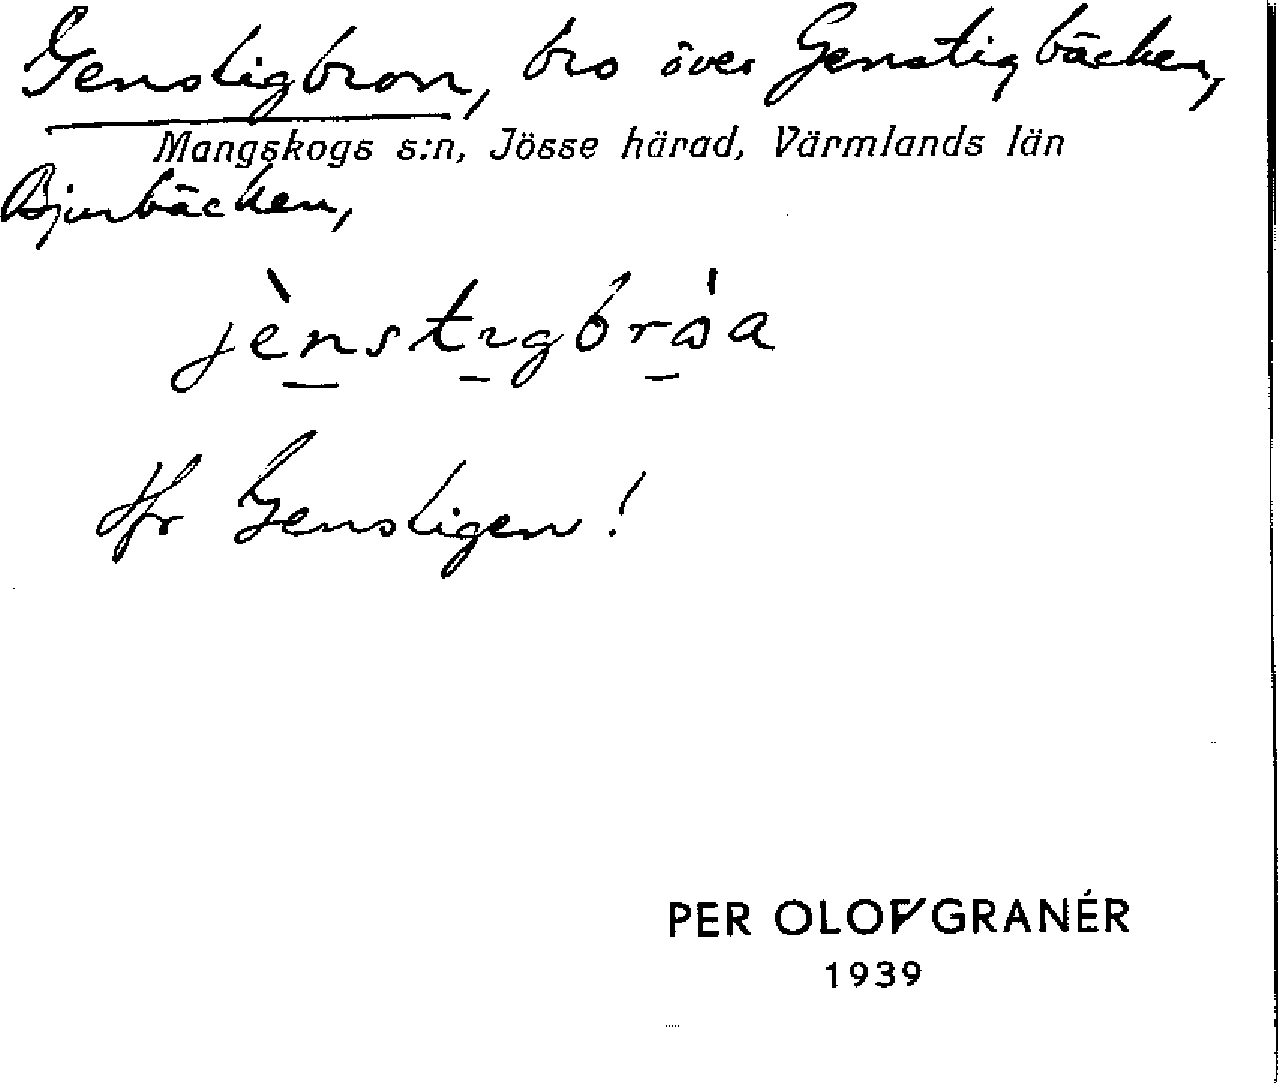 Genstigbron, bro över Genstigbäcken,
Mangskogs s:n, Jösse härad, Värmlands län
Bjurbäcken,
jènstıgbrớa
Jfr Genstigen!
PER OLOF GRANÉR
1939